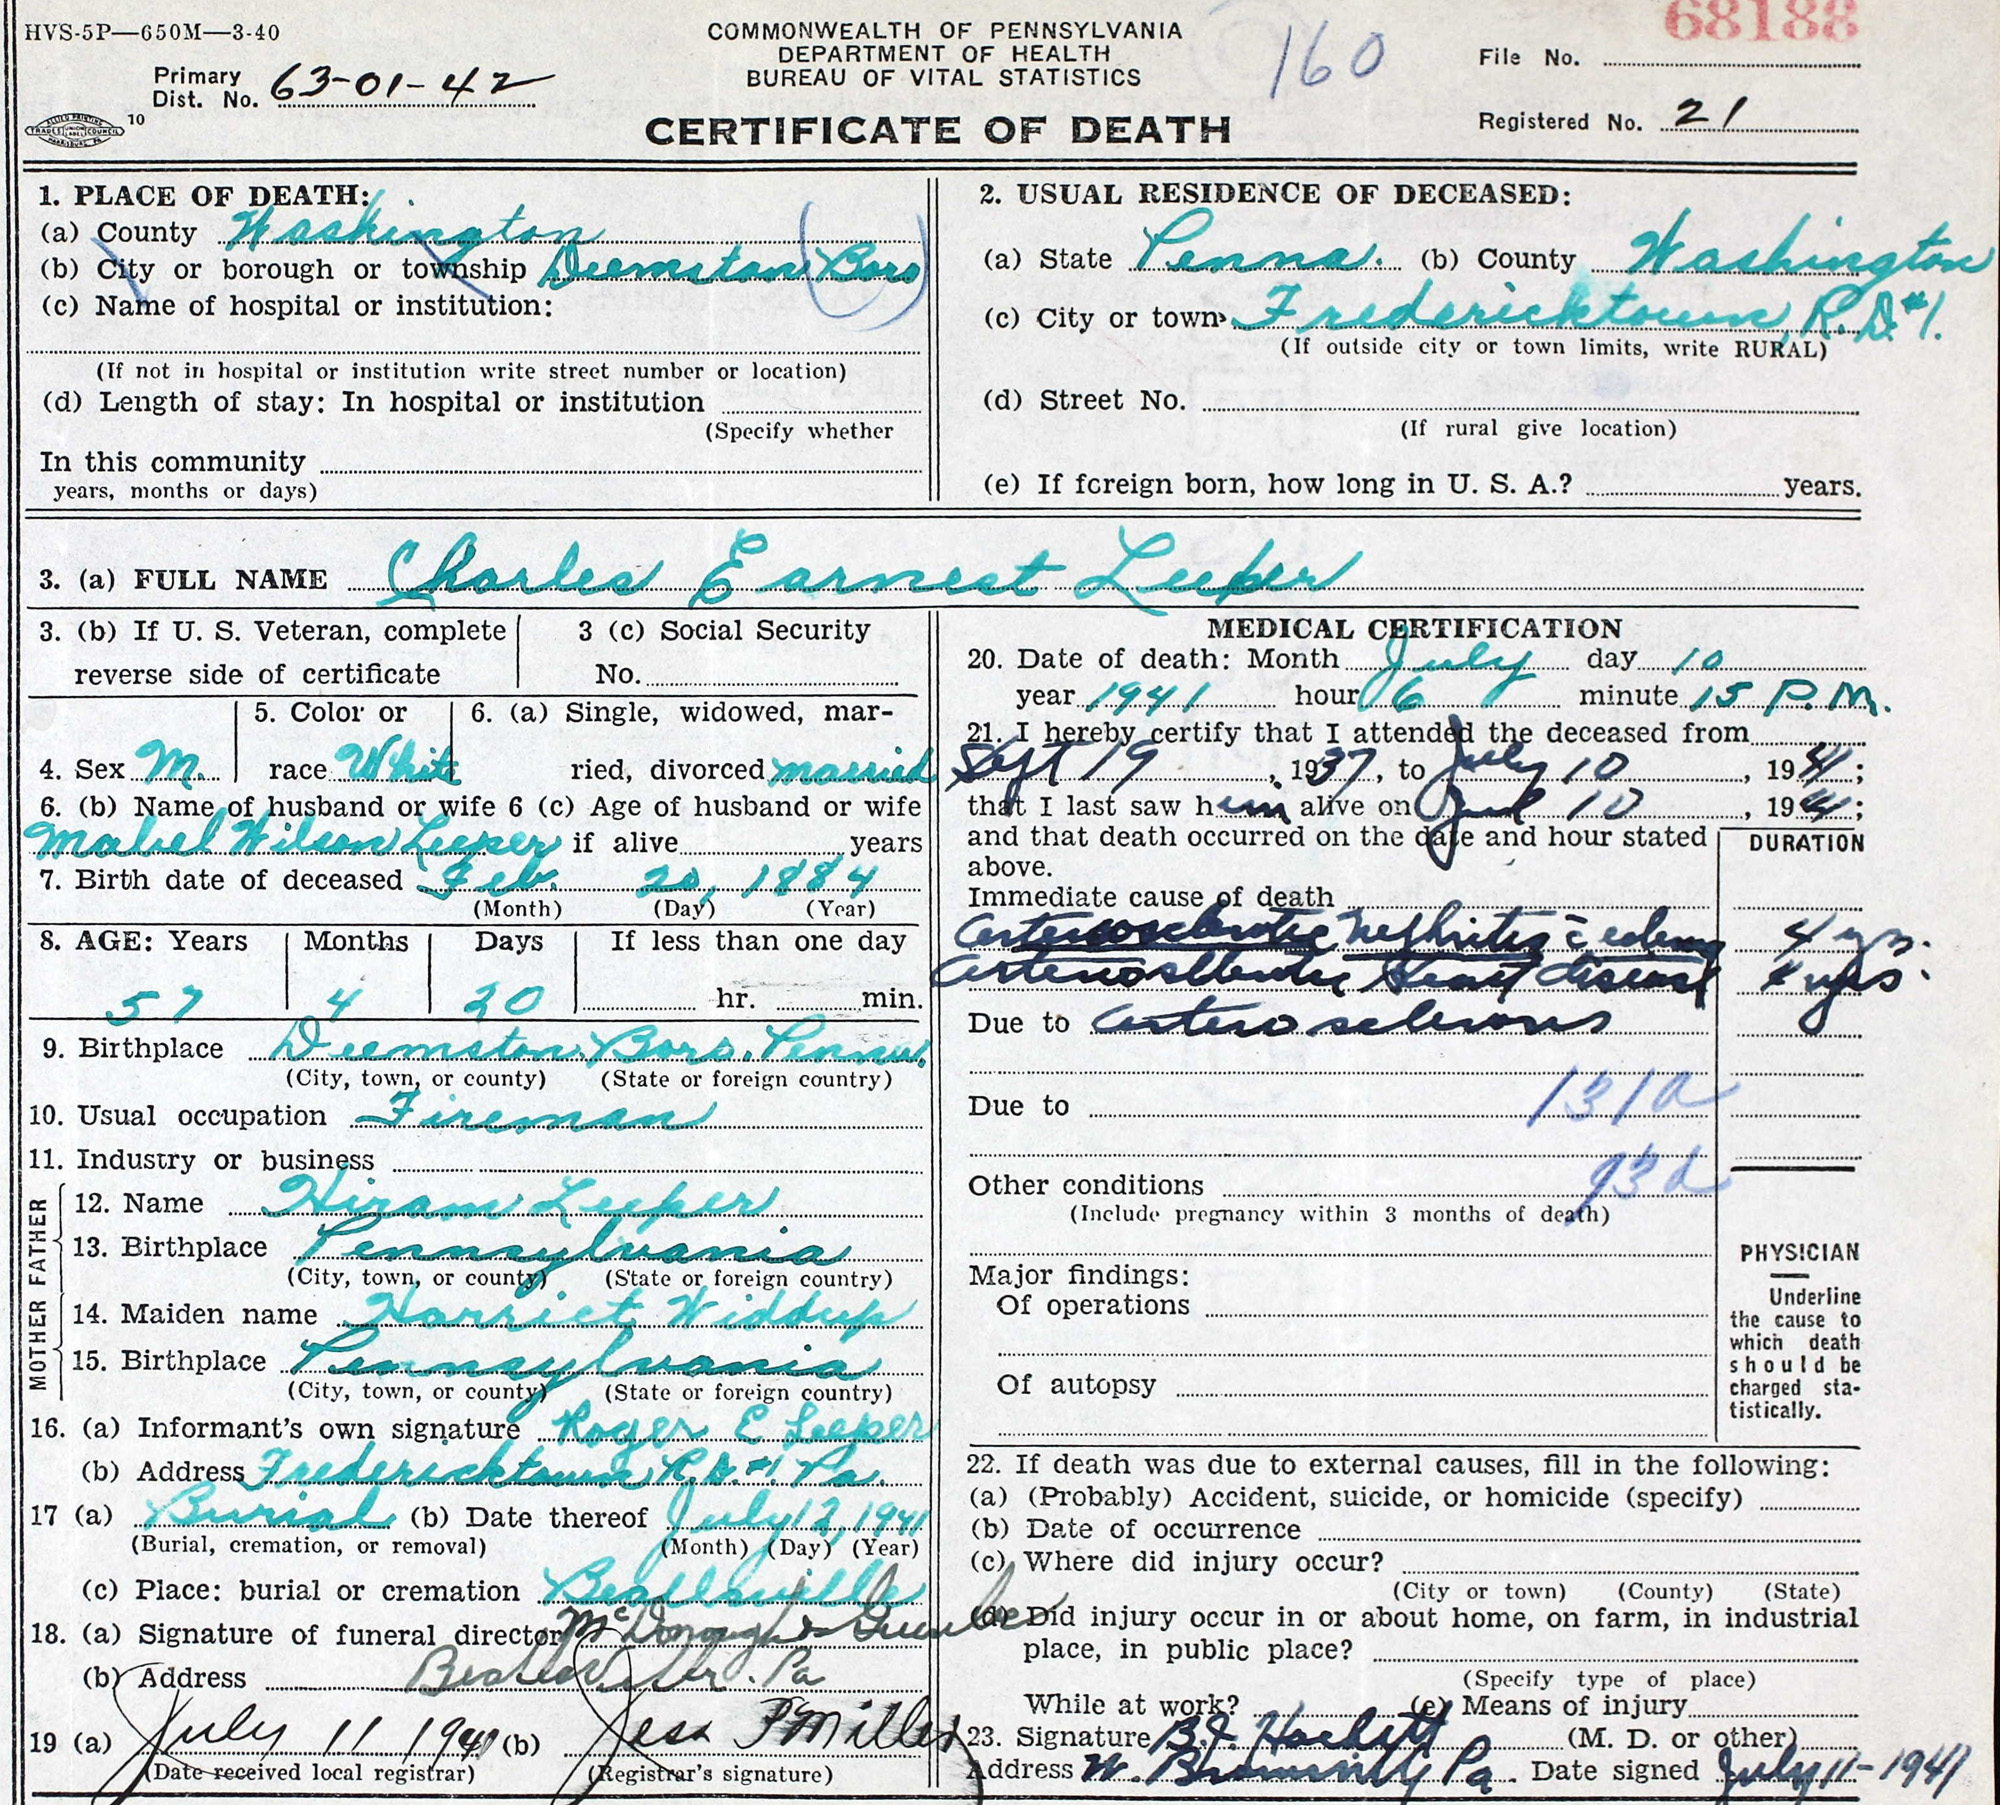 HVS-5P—650M—3-40
COMMONWEALTH OF PENNSYLVANIA
DEPARTMENT OF HEALTH
BUREAU OF VITAL STATISTICS
160
68188
File No.
Primary
Dist. No. 63-01-42
10
CERTIFICATE OF DEATH
Registered No. 21
1. PLACE OF DEATH:
(a) County Washington
(b) City or borough or township Deemston (Boro)
(c) Name of hospital or institution:
(If not in hospital or institution write street number or location)
(d) Length of stay: In hospital or institution
(Specify whether
In this community
years, months or days)
2. USUAL RESIDENCE OF DECEASED:
(a) State Penna. (b) County Washington
(c) City or town Fredericktown, R.D.#1.
(If outside city or town limits, write RURAL)
(d) Street No.
(If rural give location)
(e) If foreign born, how long in U. S. A.? years.
3. (a) FULL NAME Charles Earnest Leeper
3. (b) If U. S. Veteran, complete
reverse side of certificate
3 (c) Social Security
No.
4. Sex M.
5. Color or
race White
6. (a) Single, widowed, mar-
ried, divorced married
6. (b) Name of husband or wife 6 (c) Age of husband or wife
Mabel Wilson Leeper if alive years
7. Birth date of deceased Feb. 20, 1884
(Month) (Day) (Year)
8. AGE: Years Months Days If less than one day
57 4 20 hr. min.
9. Birthplace Deemston Boro. Penna.
(City, town, or county) (State or foreign country)
10. Usual occupation Fireman
11. Industry or business
FATHER
12. Name Hiram Leeper
13. Birthplace Pennsylvania
(City, town, or county) (State or foreign country)
MOTHER
14. Maiden name Harriet Widdup
15. Birthplace Pennsylvania
(City, town, or county) (State or foreign country)
16. (a) Informant's own signature Roger E Leeper
(b) Address Fredericktown R.D.#1. Pa.
17 (a) Burial (b) Date thereof July 12, 1941
(Burial, cremation, or removal) (Month) (Day) (Year)
(c) Place: burial or cremation Beallsville
18. (a) Signature of funeral director McDonough &
(b) Address Beallsville. Pa
19 (a) July 11 1941 (b) Jess F Miller
(Date received local registrar) (Registrar's signature)
MEDICAL CERTIFICATION
20. Date of death: Month July day 10
year 1941 hour 6 minute 15 P.M.
21. I hereby certify that I attended the deceased from
Sept 19, 1937, to July 10, 1941;
that I last saw him alive on Jul 10, 1941;
and that death occurred on the date and hour stated
above.
DURATION
Immediate cause of death
Arteriosclerotic Nephritis c̄ edema 4 yrs.
Arteriosclerotic Heart disease 4 yrs.
Due to Arteriosclerosis
Due to 131a
93d
Other conditions
(Include pregnancy within 3 months of death)
Major findings:
Of operations
Of autopsy
PHYSICIAN
Underline
the cause to
which death
should be
charged sta-
tistically.
22. If death was due to external causes, fill in the following:
(a) (Probably) Accident, suicide, or homicide (specify)
(b) Date of occurrence
(c) Where did injury occur?
(City or town) (County) (State)
(d) Did injury occur in or about home, on farm, in industrial
place, in public place?
(Specify type of place)
While at work? (e) Means of injury
23. Signature B.J. Hackett (M. D. or other)
Address W. Brownsville Pa. Date signed July 11-1941